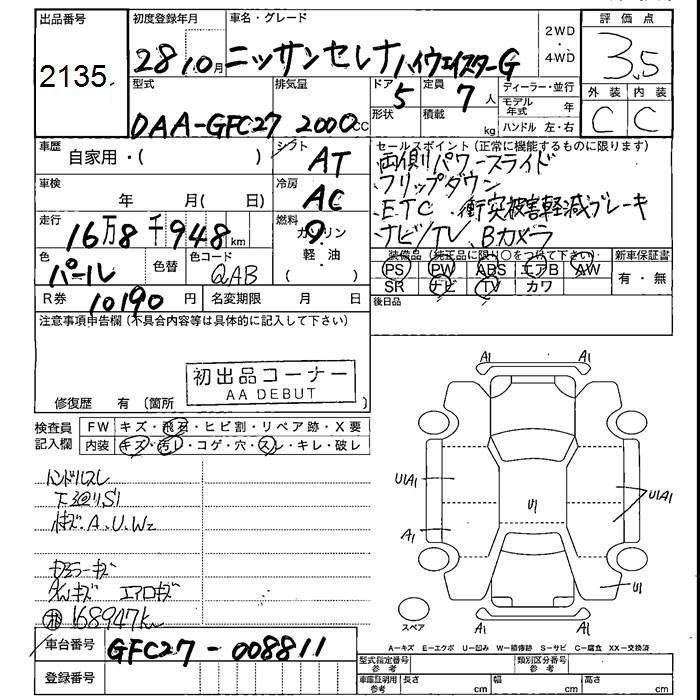 出品番号
2135
初度登録年月
28 10月
車名・グレード
ニッサンセレナ ハイウェイスターG
2WD
・
4WD
評価点
3.5
外装 内装
C C
型式
DAA-GFC27
排気量
2000cc
ドア
5
形状
定員
7人
積載
kg
ディーラー・並行
モデル年式 年
ハンドル 左・右
車歴
自家用・( )
シフト
AT
セールスポイント(正常に機能するものに限ります)
両側パワースライド
フリップダウン
ETC 衝突被害軽減ブレーキ
ナビ/TV Bカメラ
車検
年 月( 日)
冷房
AC
走行
16万8千948km
燃料
ガソリン
軽・油
( )
色
パール
色替
色コード
QAB
装備品(純正品に限り○をつけて下さい)
PS PW ABS エアB AW
SR ナビ TV カワ
新車保証書
有・無
後日品
R券
10190円
名変期限 月 日
注意事項申告欄(不具合内容等は具体的に記入して下さい)
初出品コーナー
AA DEBUT
修復歴 有 (箇所 )
検査員
記入欄
FW キズ・飛石・ヒビ割・リペア跡・X要
内装 キズ・汚レ・コゲ・穴・スレ・キレ・破レ
ハンドルスレ
下廻りS1
キズ.A.U.W2
キズ エアロキズ
168947km
A1 A1
U1A1
U1
U1A1
A1
U1
A1 A1
スペア
A=キズ E=エクボ U=凹み W=補修跡 S=サビ C=腐食 XX=交換済
車台番号
GFC27-008811
登録番号
型式指定番号
参考
類別区分番号
参考
車庫証明用
参考
長さ cm 幅 cm 高さ cm